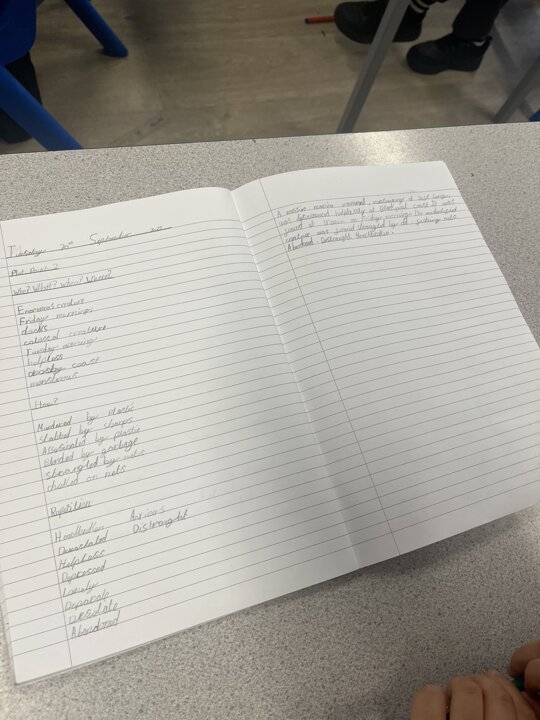 Tuesday 20th September
Plot Point 2
Who? What? When? Where?
Enormous creature
Friday morning
docks
colossal creature
Tuesday evening
helpless
coast
monstrous
How?
Murdered by Plastic
stabbed by sharps
Assasinated by plastic
Blinded by garbage
strangled by nets
choked on nets
Reptition
Heartbroken Anxious
Devastated Distraught
Helpless
Depressed
Lonely
Desperate
desolate
Abandoned
A massive marine mammal, measuring at
was discovered helplessly at coast. It was
found at on Friday morning. The
creature was found strangled by nets.
Abandoned. Distraught. Heartbroken.